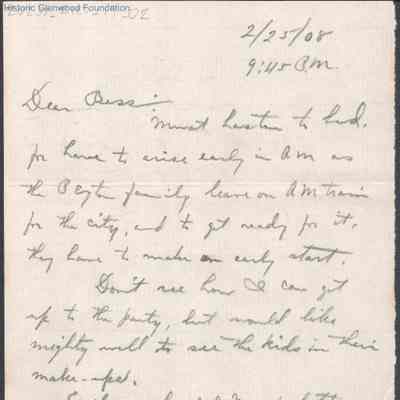 Historic Glenwood Foundation
2/25/08
9:45 P.M.
Dear Bess:
Must hasten to bed,
for have to arise early in A M as
the Peyton family leave on A M train
for the city, and to get ready for it,
they have to make an early start.
Don't see how I can get
up to the party, but would like
mighty well to see the kids in their
make-ups.